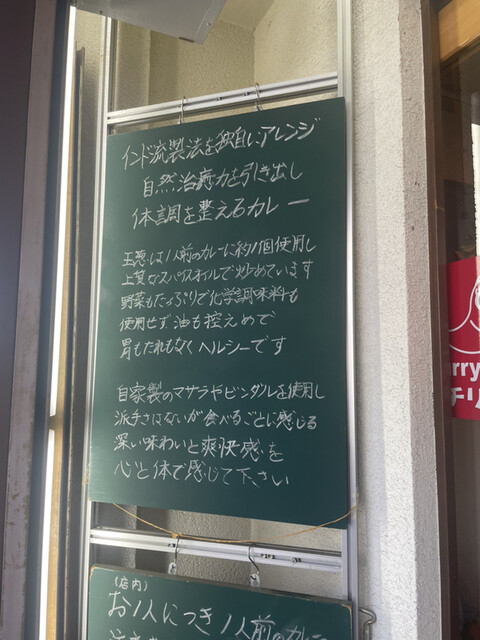 インド流製法を独自にアレンジ
自然治癒力を引き出し
体調を整えるカレー
玉葱は1人前のカレーに約1個使用し
上質なスパイスオイルで炒めています
野菜もたっぷりで化学調味料も
使用せず油も控えめで
胃もたれもなくヘルシーです
自家製のマサラやビンダルを使用し
派手さはないが食べるごとに感じる
深い味わいと爽快感を
心と体で感じて下さい
(店内)
お1人につき1人前のカレー
rry